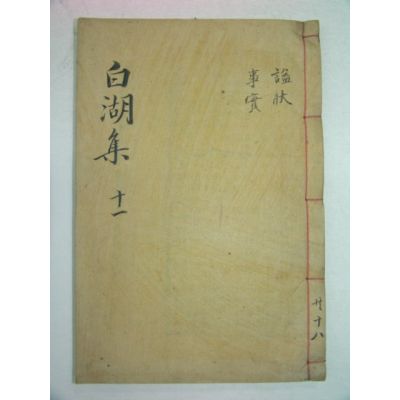 白湖集
十一
諡狀
事實
共十八